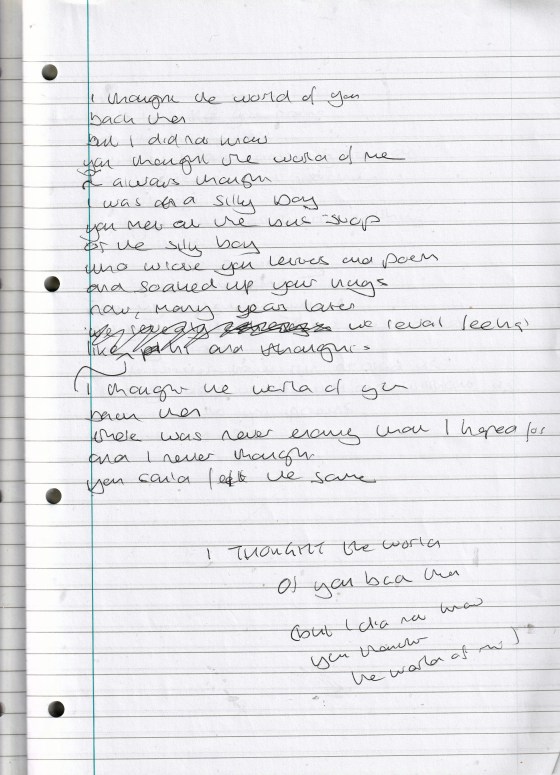 I thought the world of you
back then
but I did not know
you thought the world of me
I always thought
I was a silly boy
you met at the bus-stop
or the silly boy
who wrote you letters and poem
and soaked up your hugs
now, many years later
we reveal feelings
like and thoughts
I thought the world of you
back then
there was never enough than I hoped for
and I never thought
you could feel the same
I THOUGHT the world
of you back then
(but I did not know
you thought
the world of me)